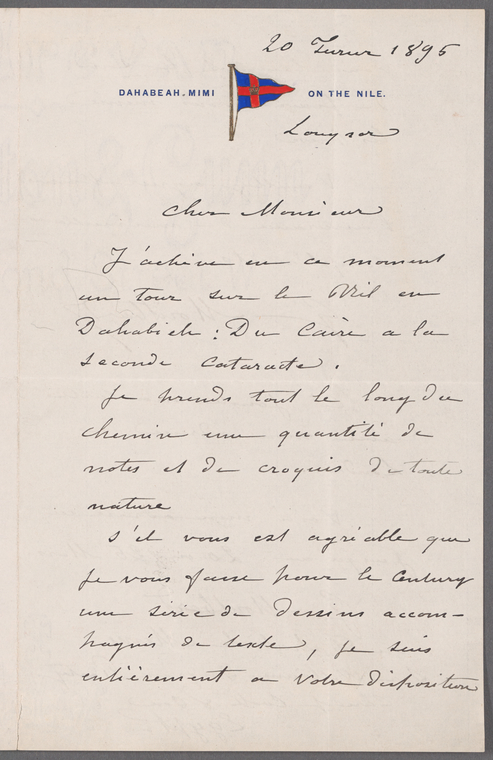 20 Fevrier 1895
DAHABEAH-MIMI ON THE NILE.
Louqsor
Cher Monsieur
J'achève en ce moment
un tour sur le Nil en
Dahabieh : Du Caire a la
seconde cataracte.
Je prends tout le long du
chemin une quantité de
notes et de croquis de toute
nature
s'il vous est agréable que
je vous fasse pour le Century
une série de dessins accom-
pagnés de texte, je suis
entièrement a votre disposition